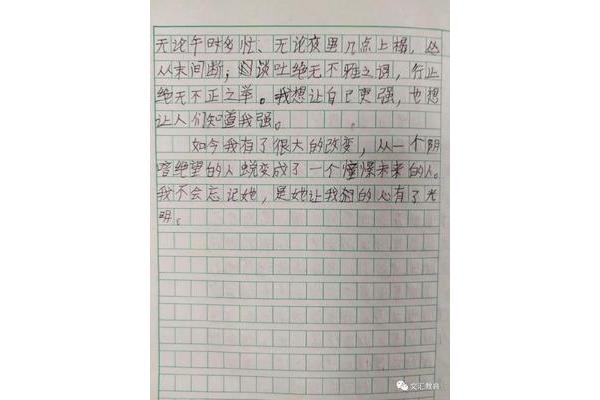 无论午时多忙、无论夜里几点上榻，丛
从未间断；谈吐绝无不雅之词，行止
绝无不正之举。我想让自己更强，也想
让人们知道我强。
如今我有了很大的改变，从一个阴
暗绝望的人蜕变成了一个憧憬未来的人。
我不会忘记她，是她让我的心有了光
明。
文汇教育